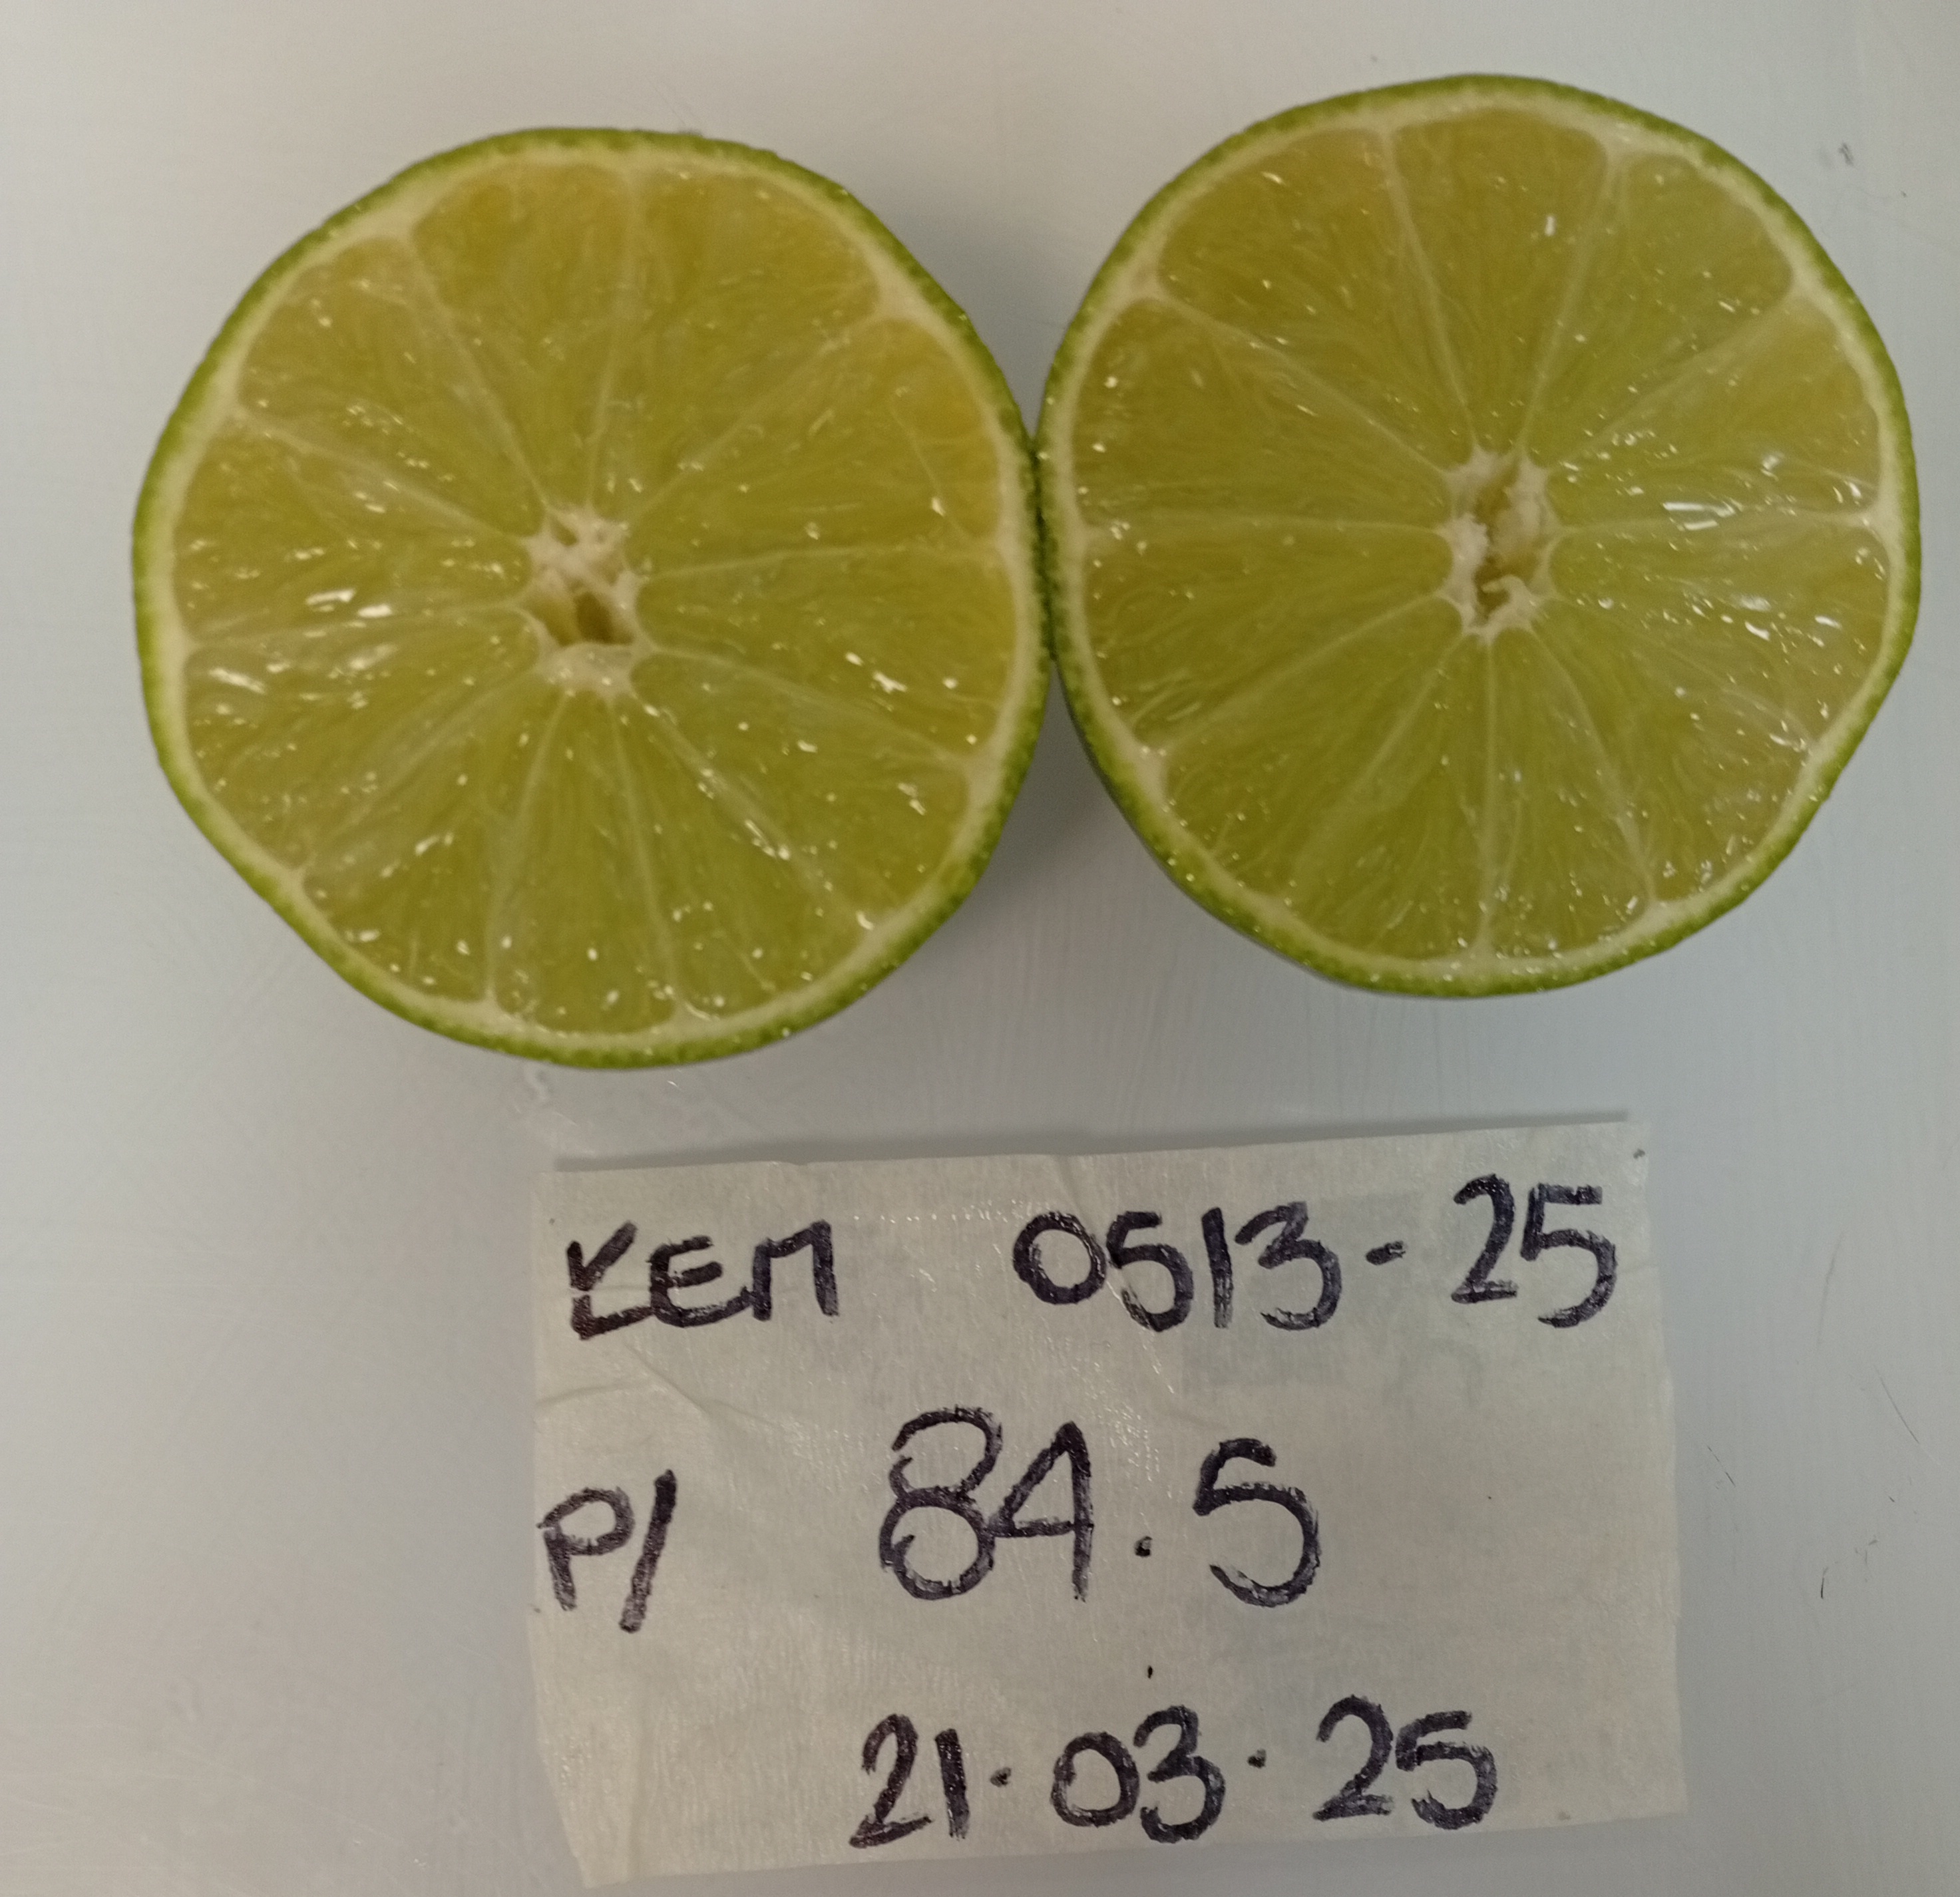 KEM 0513-25
P/ 84.5
21.03.25